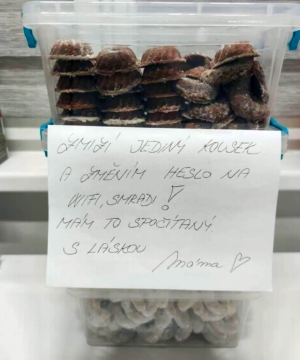 ZMIZÍ JEDINÝ KOUSEK
A ZMĚNÍM HESLO NA
WIFI, SMRADI!
MÁM TO SPOČÍTANÝ
S LÁSKOU
Máma ♡